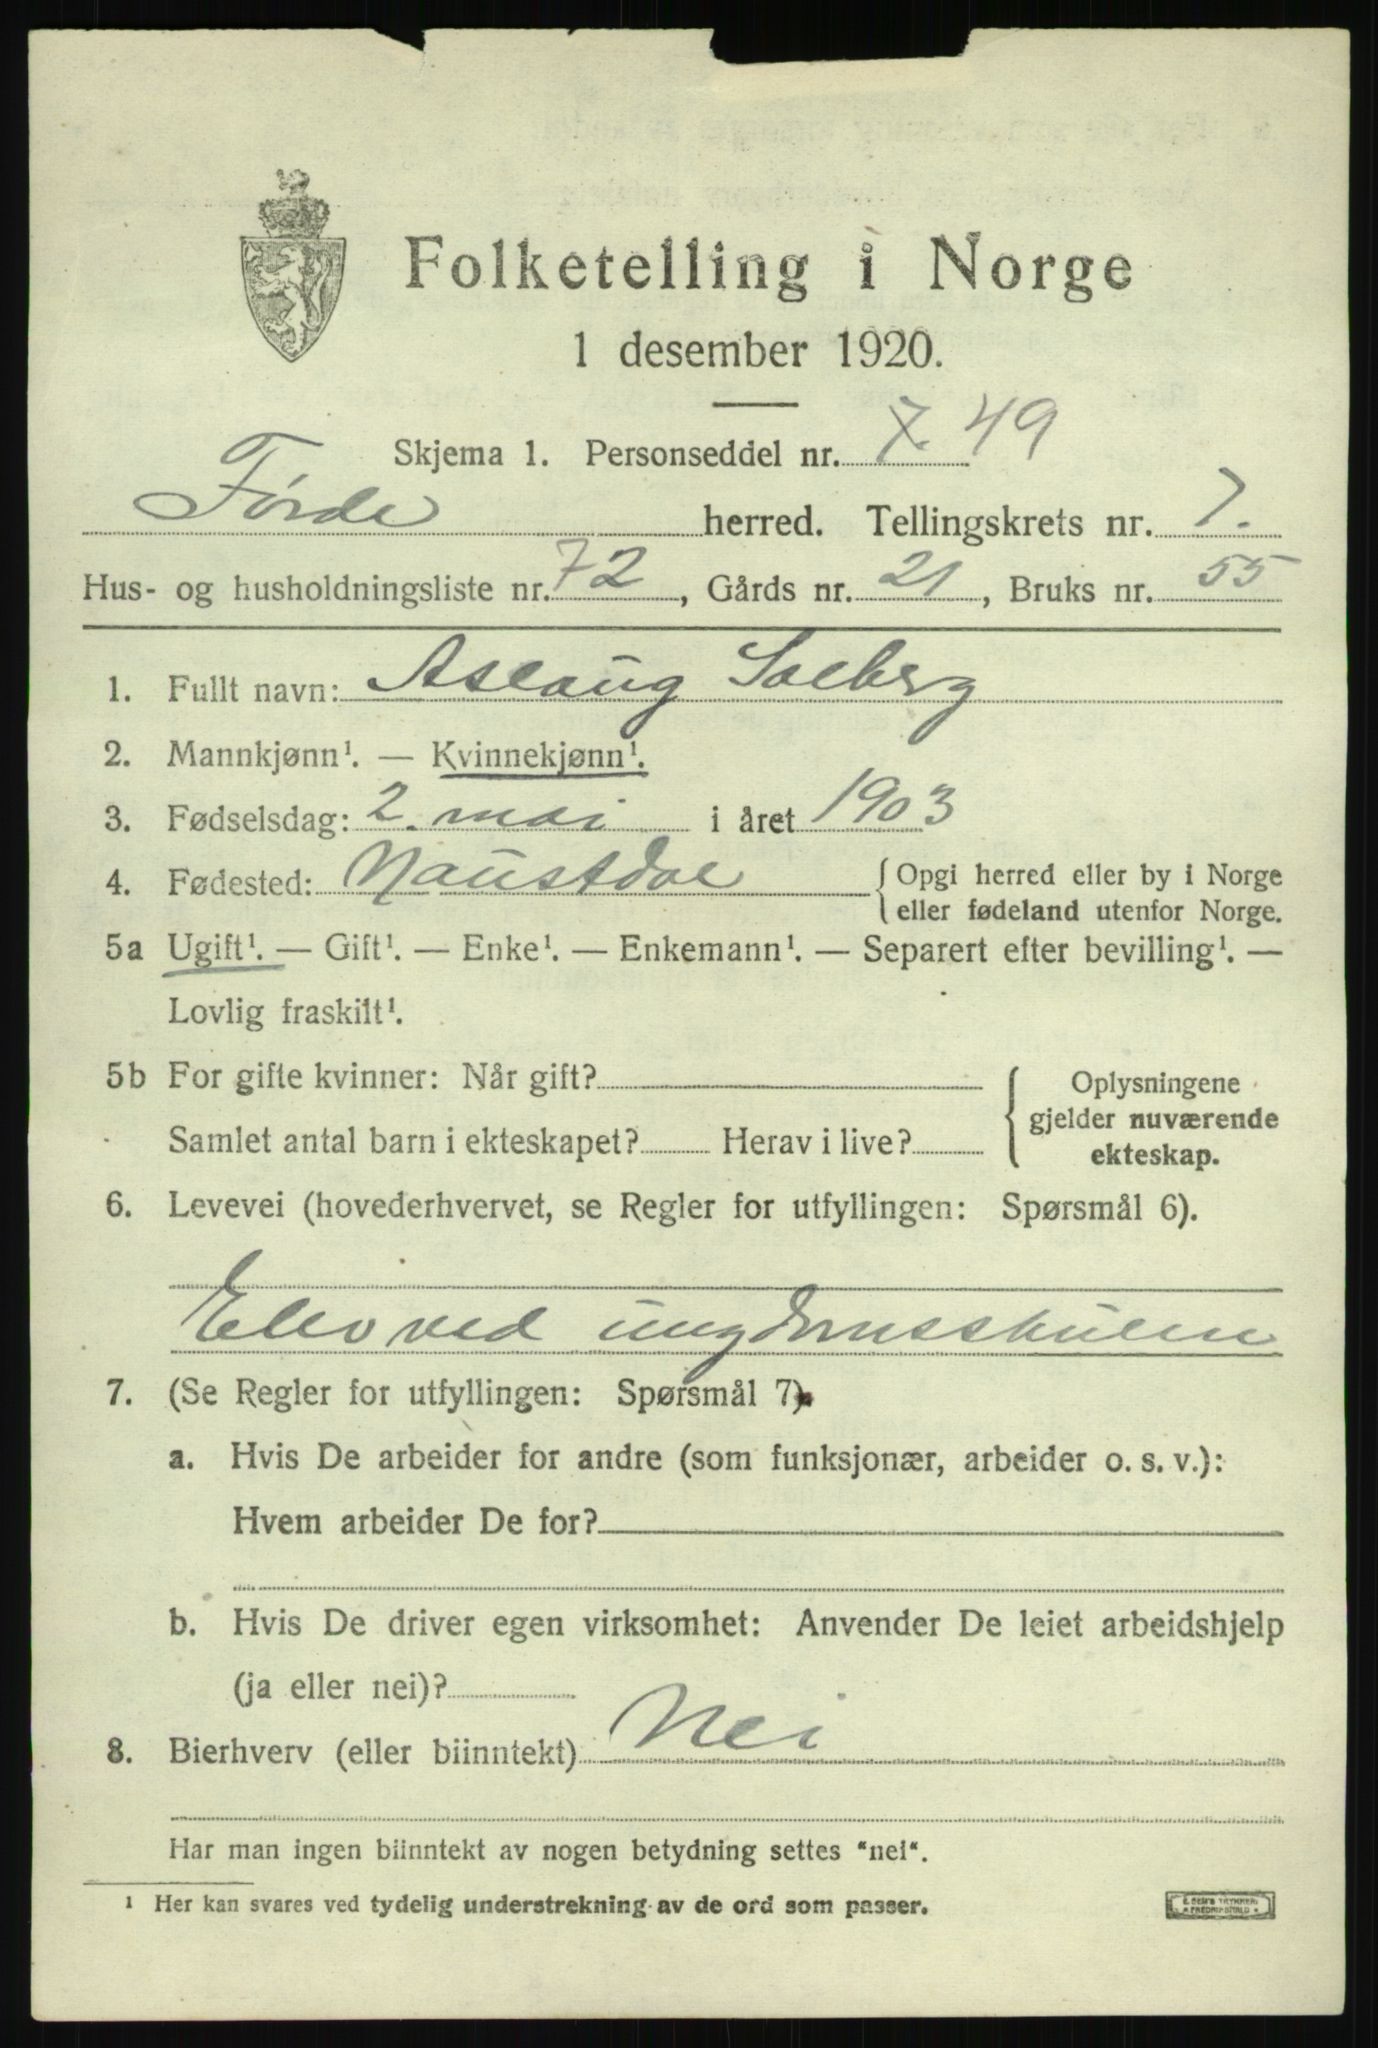 Folketelling i Norge
1 desember 1920.
Skjema 1. Personseddel nr. 7. 49
Førde herred. Tellingskrets nr. 7.
Hus- og husholdningsliste nr. 72, Gårds nr. 21, Bruks nr. 55
1. Fullt navn: Aslaug Solberg
2. Mannkjønn¹. — Kvinnekjønn¹.
3. Fødselsdag: 2. mai i året 1903
4. Fødested: Naustdal { Opgi herred eller by i Norge
eller fødeland utenfor Norge.
5a Ugift¹. — Gift¹. — Enke¹. — Enkemann¹. — Separert efter bevilling¹. —
Lovlig fraskilt¹.
5b For gifte kvinner: Når gift? { Oplysningene
gjelder nuværende
Samlet antal barn i ekteskapet? Herav i live?
ekteskap.
6. Levevei (hovederhvervet, se Regler for utfyllingen: Spørsmål 6).
Elev ved ungdomsskulen
7. (Se Regler for utfyllingen: Spørsmål 7)
a. Hvis De arbeider for andre (som funksjonær, arbeider o. s. v.):
Hvem arbeider De for?
b. Hvis De driver egen virksomhet: Anvender De leiet arbeidshjelp
(ja eller nei)?
8. Bierhverv (eller biinntekt) Nei
Har man ingen biinntekt av nogen betydning settes "nei".
¹ Her kan svares ved tydelig understrekning av de ord som passer.